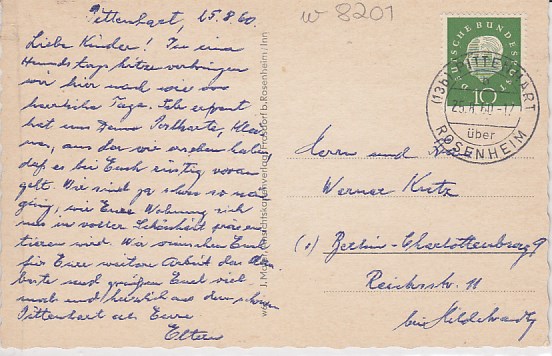 Pittenhart, 25.8.60.
Liebe Kinder! In einer
Hundstagshitze verbringen
wir hier nach wie vor
herrliche Tage. Ich
hat uns Deine Postkarte, Klaus
aus der wir ersehen haben
daß es bei Euch rüstig voran
geht. Wir sind ja schon so neu
gierig, wie Eure Wohnung sich
uns in voller Schönheit präsen
tieren wird. Wir wünschen Euch
für Eure weitere Arbeit das Aller
beste und grüßen Euch viel
mals und herzlich aus dem schönen
Pittenhart als Eure
Eltern
J. Ansichtskartenverlag, b. Rosenheim/Inn
w 8201
DEUTSCHE BUNDESPOST
10
(13b) PITTENHART
25.8.60.-17
über
ROSENHEIM
Herrn und Frau
Werner Kutz
(1) Berlin-Charlottenburg 9
Reichsstr. 11
bei